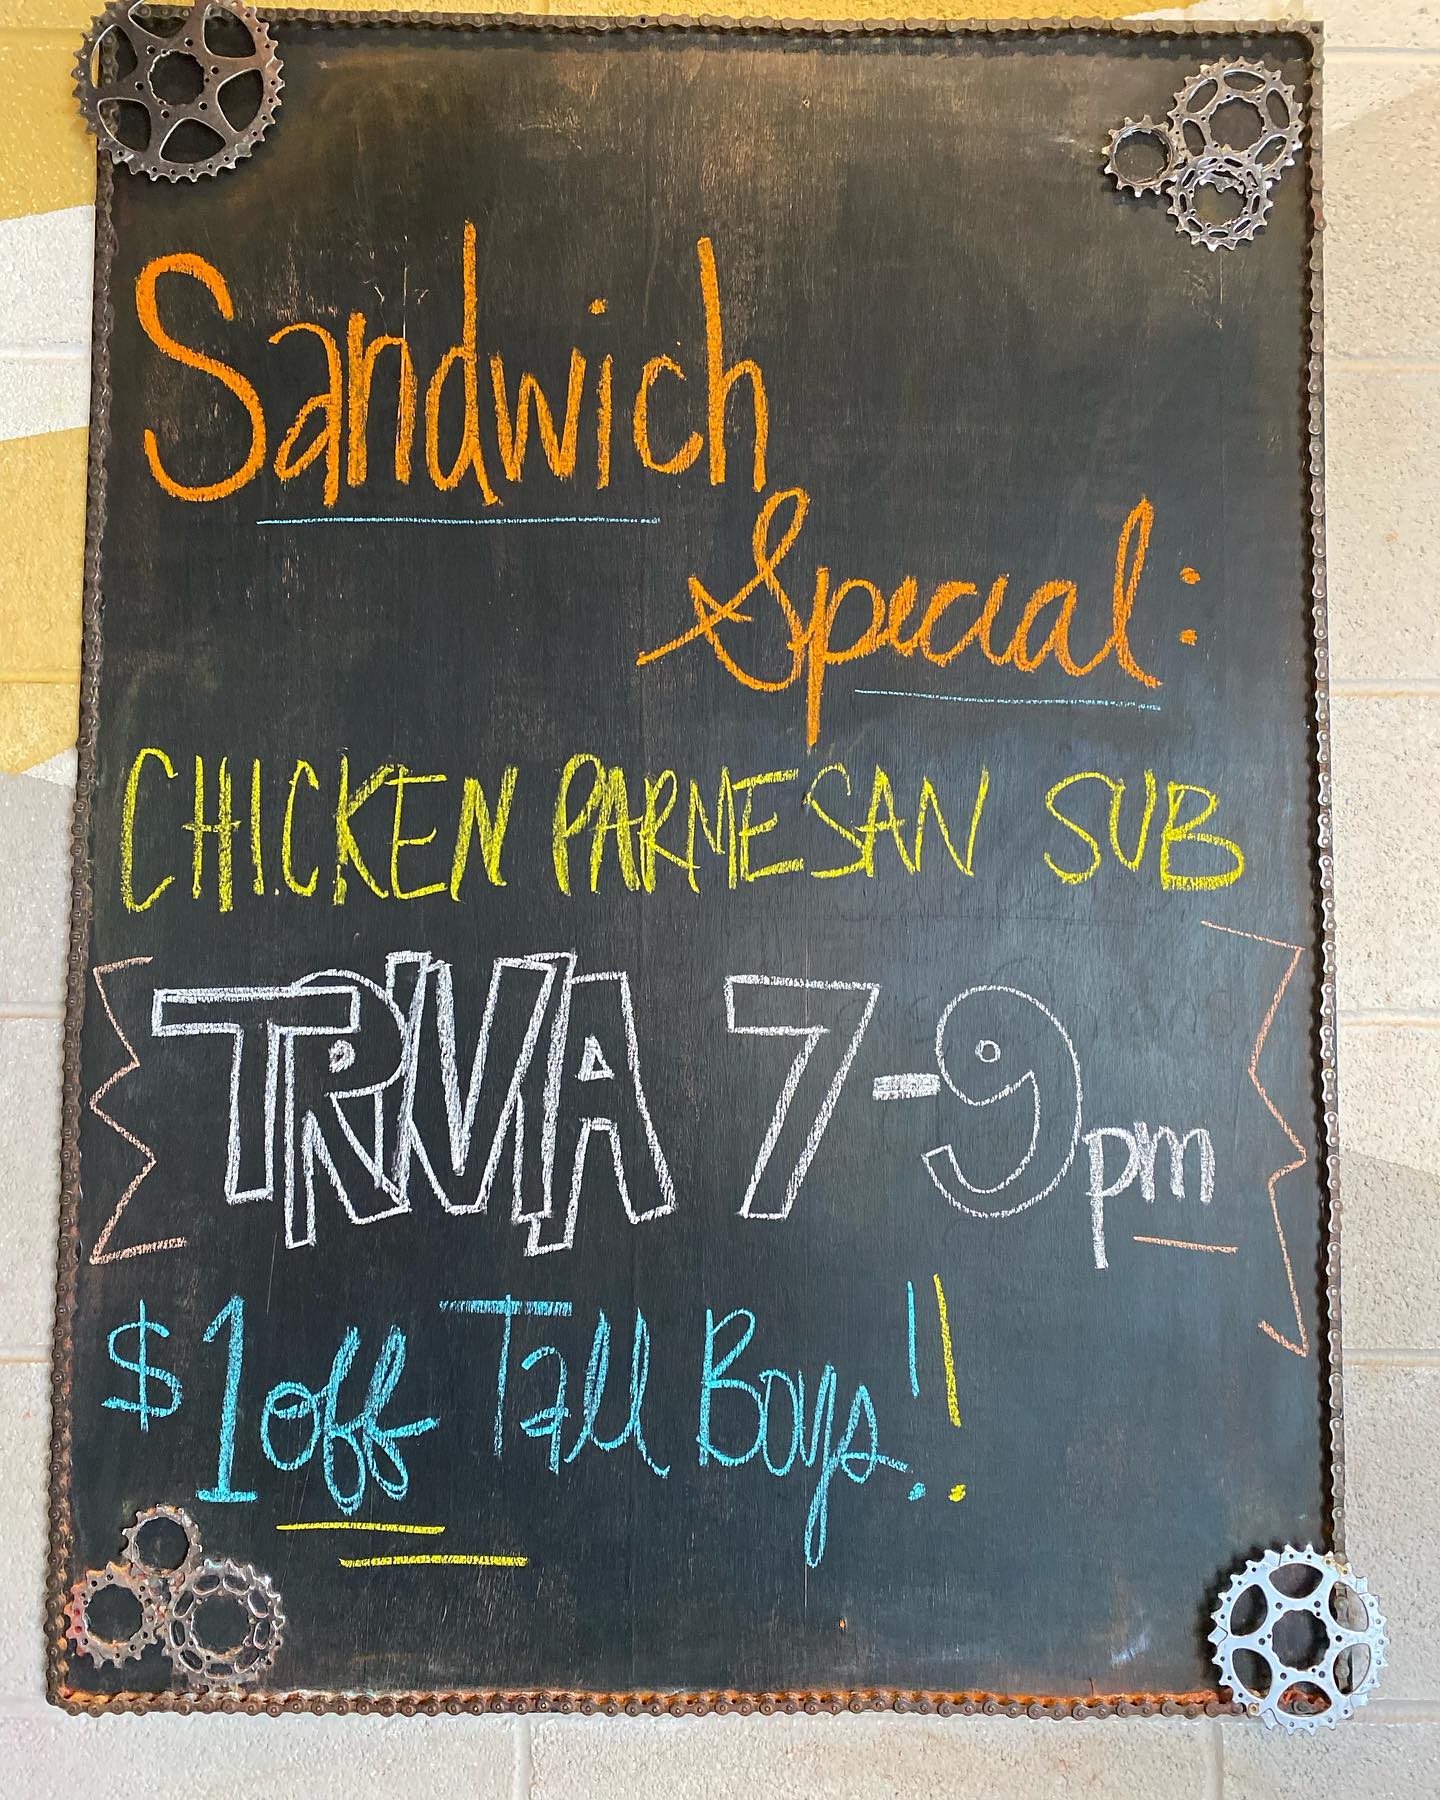 Sandwich
Special:
CHICKEN PARMESAN SUB
TRIVIA 7-9pm
$1 off Tall Boys!!